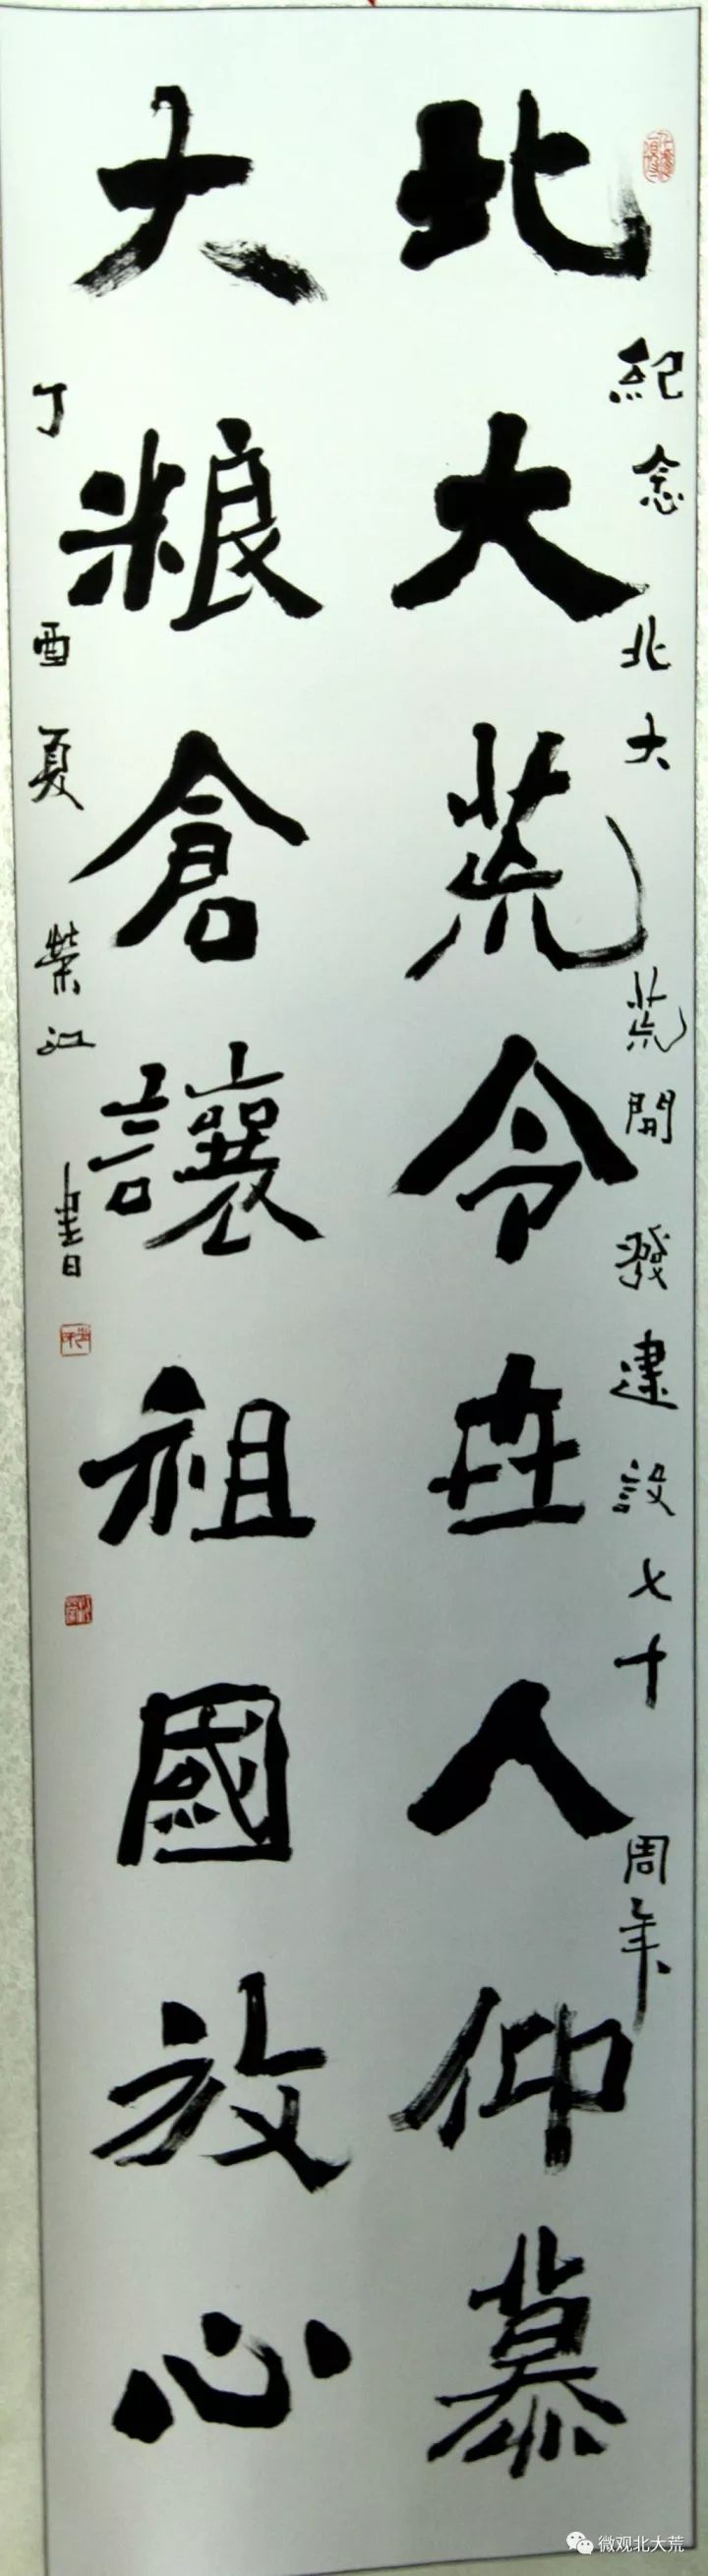 紀念北大荒開發建設七十周年
北大荒令世人仰慕
大粮倉讓祖國放心
丁酉夏榮江書
微观北大荒